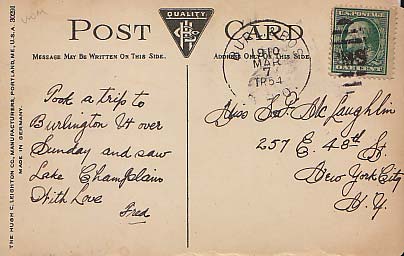 POST CARD
QUALITY
MESSAGE MAY BE WRITTEN ON THIS SIDE.
THE HUGH C. LEIGHTON CO., MANUFACTURERS, PORTLAND, ME., U.S.A.
MADE IN GERMANY.
1910
MAR
7
U.S. POSTAGE
ONE CENT
Took a trip to
Burlington Vt over
Sunday and saw
Lake Champlain
With Love
Fred
Miss McLaughlin
257 E. 48th St.
New York City
N.Y.